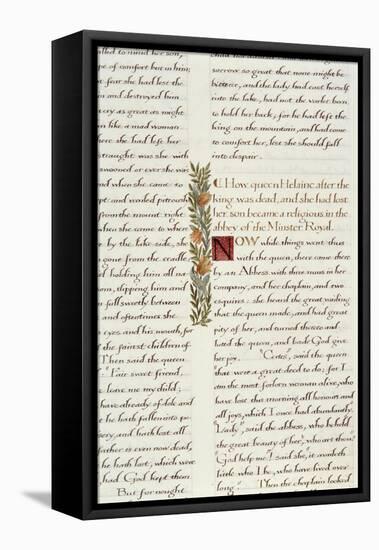 alled to mind her son,
ye of comfort but in him;
t fear she had lost the
n and destroyed him
cry as great as might
n like a mad woman
here she had left her
traught was she with
swooned or ever she wa
nd when she came to
ept and wailed piteously
from the mount right
when she came to where
by the lake-side, she
gone from the cradle
d holding him all na
son, clipping him and
n full sweetly between
d oftentimes she
s eyes and his mouth, for
the fairest children of
Then said the queen
"Fair sweet friend,
e leave me my child;
have already of dole and
t he hath fallen into po
sery, and hath lost all
father is even now dead,
he hath lost, which were
had God kept them.
But for nought
sorrow so great that none might be
bitterer, and the lady had cast herself
into the lake, had not the varlet been
to hold her back; for he had left the
king on the mountain, and had come
to comfort her, lest she should fall
into despair.
How queen Helaine after the
king was dead, and she had lost
her son became a religious in the
abbey of the Minster Royal.
NOW while things went thus
with the queen, there came there
by an Abbess with three nuns in her
company, and her chaplain, and two
esquires: she heard the great wailing
that the queen made, and had great
pity of her, and turned thereto and
hailed the queen, and bade God give
her joy. "Certes", said the queen
"that were a great deed to do; for I
am the most forlorn woman alive, who
have lost this morning all honour and
all joys, which I once had abundantly.
"Lady" said the abbess, who beheld
the great beauty of her, "who art thou?"
"God help me!" said she, "it availeth
little who I be, who have lived over
long." Then the chaplain looked